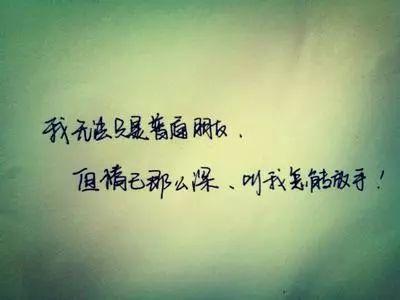 我无法只是普通朋友、
但情已那么深、叫我怎能放手!